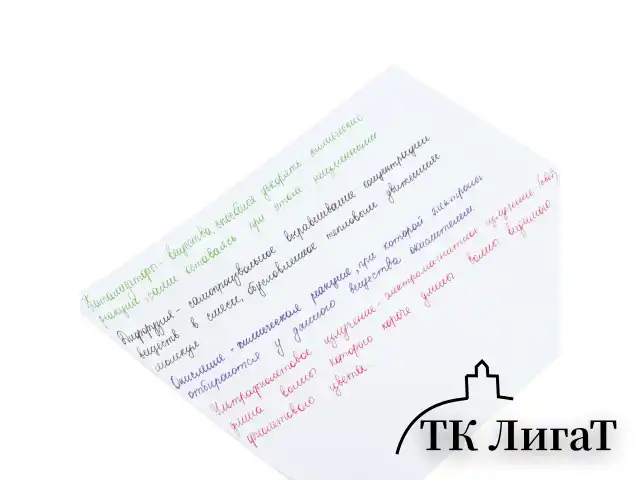 Катализаторы - вещества, способные ускорять химические
реакции, сами оставаясь при этом неизменными
Диффузия - самопроизвольное выравнивание концентрации
веществ в смеси, обусловленное тепловым движением
молекул
Окисление - химическая реакция, при которой электроны
отбираются у данного вещества окислителем
Ультрафиолетовое излучение - электромагнитное излучение (свет)
длина волны которого короче длины волны видимого
фиолетового цвета.
ТК ЛигаТ